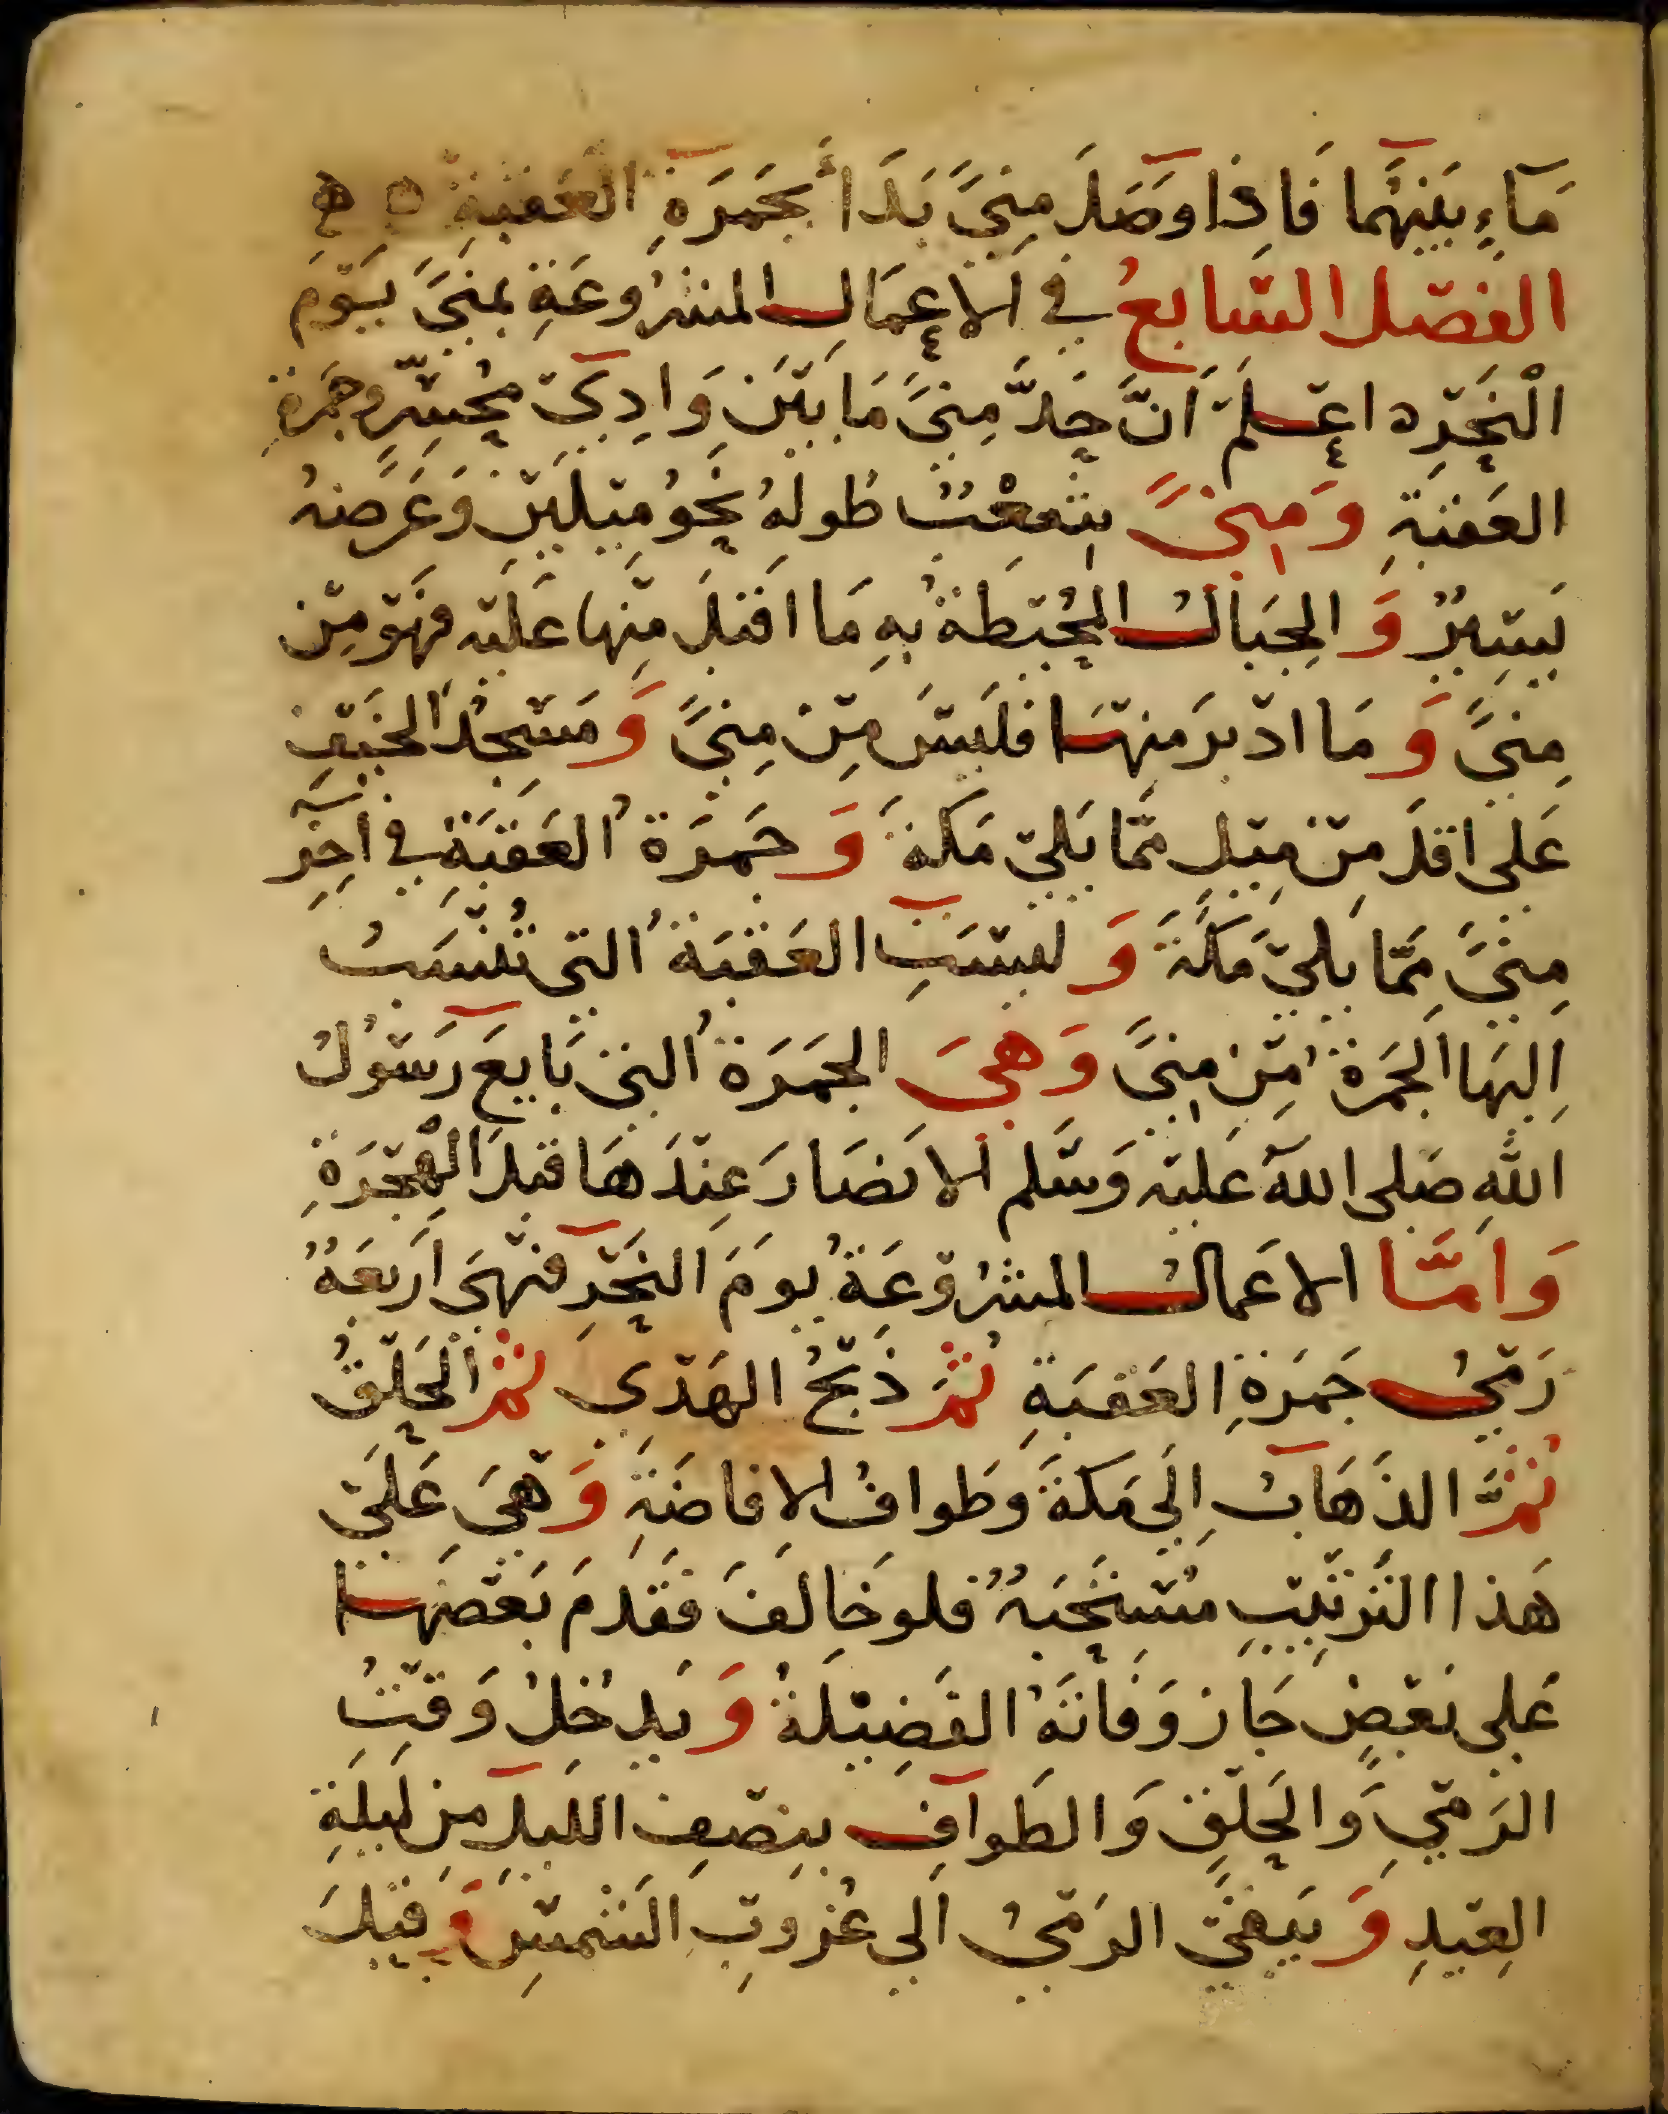 مَآءٍ بَيْنَهُمَا فَاِذَا وَصَلَ مِنىً بَدَأَ بجَمرَةِ العَقَبَةِ ه ه
الفصْل السّابعُ في الاعمَالِ المشرُوعَةِ بمنىً يَوْمَ
الْنَحْرِ ه اعْلم اَنَّ حَدَّ مِنىً مَا بَيْنَ وَادِيْ مُحَسِّرٍ وجَمرَةِ
العَقبَةِ وَمِنىً شِعْبٌ طُولهُ نَحْوُ مِيْلَيْنِ وَعَرْضهُ
يَسِيْرٌ وَالجِبَالُ المحُيْطَةُ بهِ مَا اقبَلَ مِنْها عَلَيْه فهَوْ مِنْ
مِنىً وَمَا ادْبرَ مِنهَا فلَيسَ مِنْ مِنىً وَمَسْجِدُ الخَيْفِ
عَلى اقلَ مِنْ مِيْلٍ ممَّا يَلِيْ مَكةَ وَجَمرَةُ العَقَبَةِ في آخِرِ
مِنىً مِمَّا يَلِيْ مَكَّةَ وَليْسَتِ العَقَبَةُ التي تُنْسَبُ
اِليَها الجَمرَةُ مِنْ مِنىً وَهيَ الجَمَرَةُ التي بَايَعَ رَسَوْلُ
اللهِ صَلى اللهُ عَليْه وَسَلم الانصَارَ عِنْدَهَا قبلَ الْهِجْرَةِ
وَامَّا الاعَمالُ المشرُوْعَةُ يومَ النَحْرِ فهْيَ اَربَعَةٌ
رَمْيُ جَمَرَةِ العَقَبَةِ ثُمَّ ذَبْحُ الهَدْيِ ثمَّ الْحَلْقُ
ثُمَّ الذَهَابُ اِلَى مَكةَ وَطوافُ الافاضَةِ وَهْيَ عَلَىْ
هَذا التَرتيْبِ مُسْتَحَبةٌ فلو خَالَفَ فقَدمَ بَعْضَهَا
عَلى بَعْضٍ جَازَ وَفاتَهُ الفَضِيْلَةُ وَيَدخُلُ وَقتُ
الرَمْيِ وَالحَلْقِ وَالطَوافِ بنِصْفِ الليَل مِن لَيلَةِ
العِيْدِ وَيَبقىْ الرَمْيُ الى غُرُوْبِ الشَمْسِ وَقيْلَ